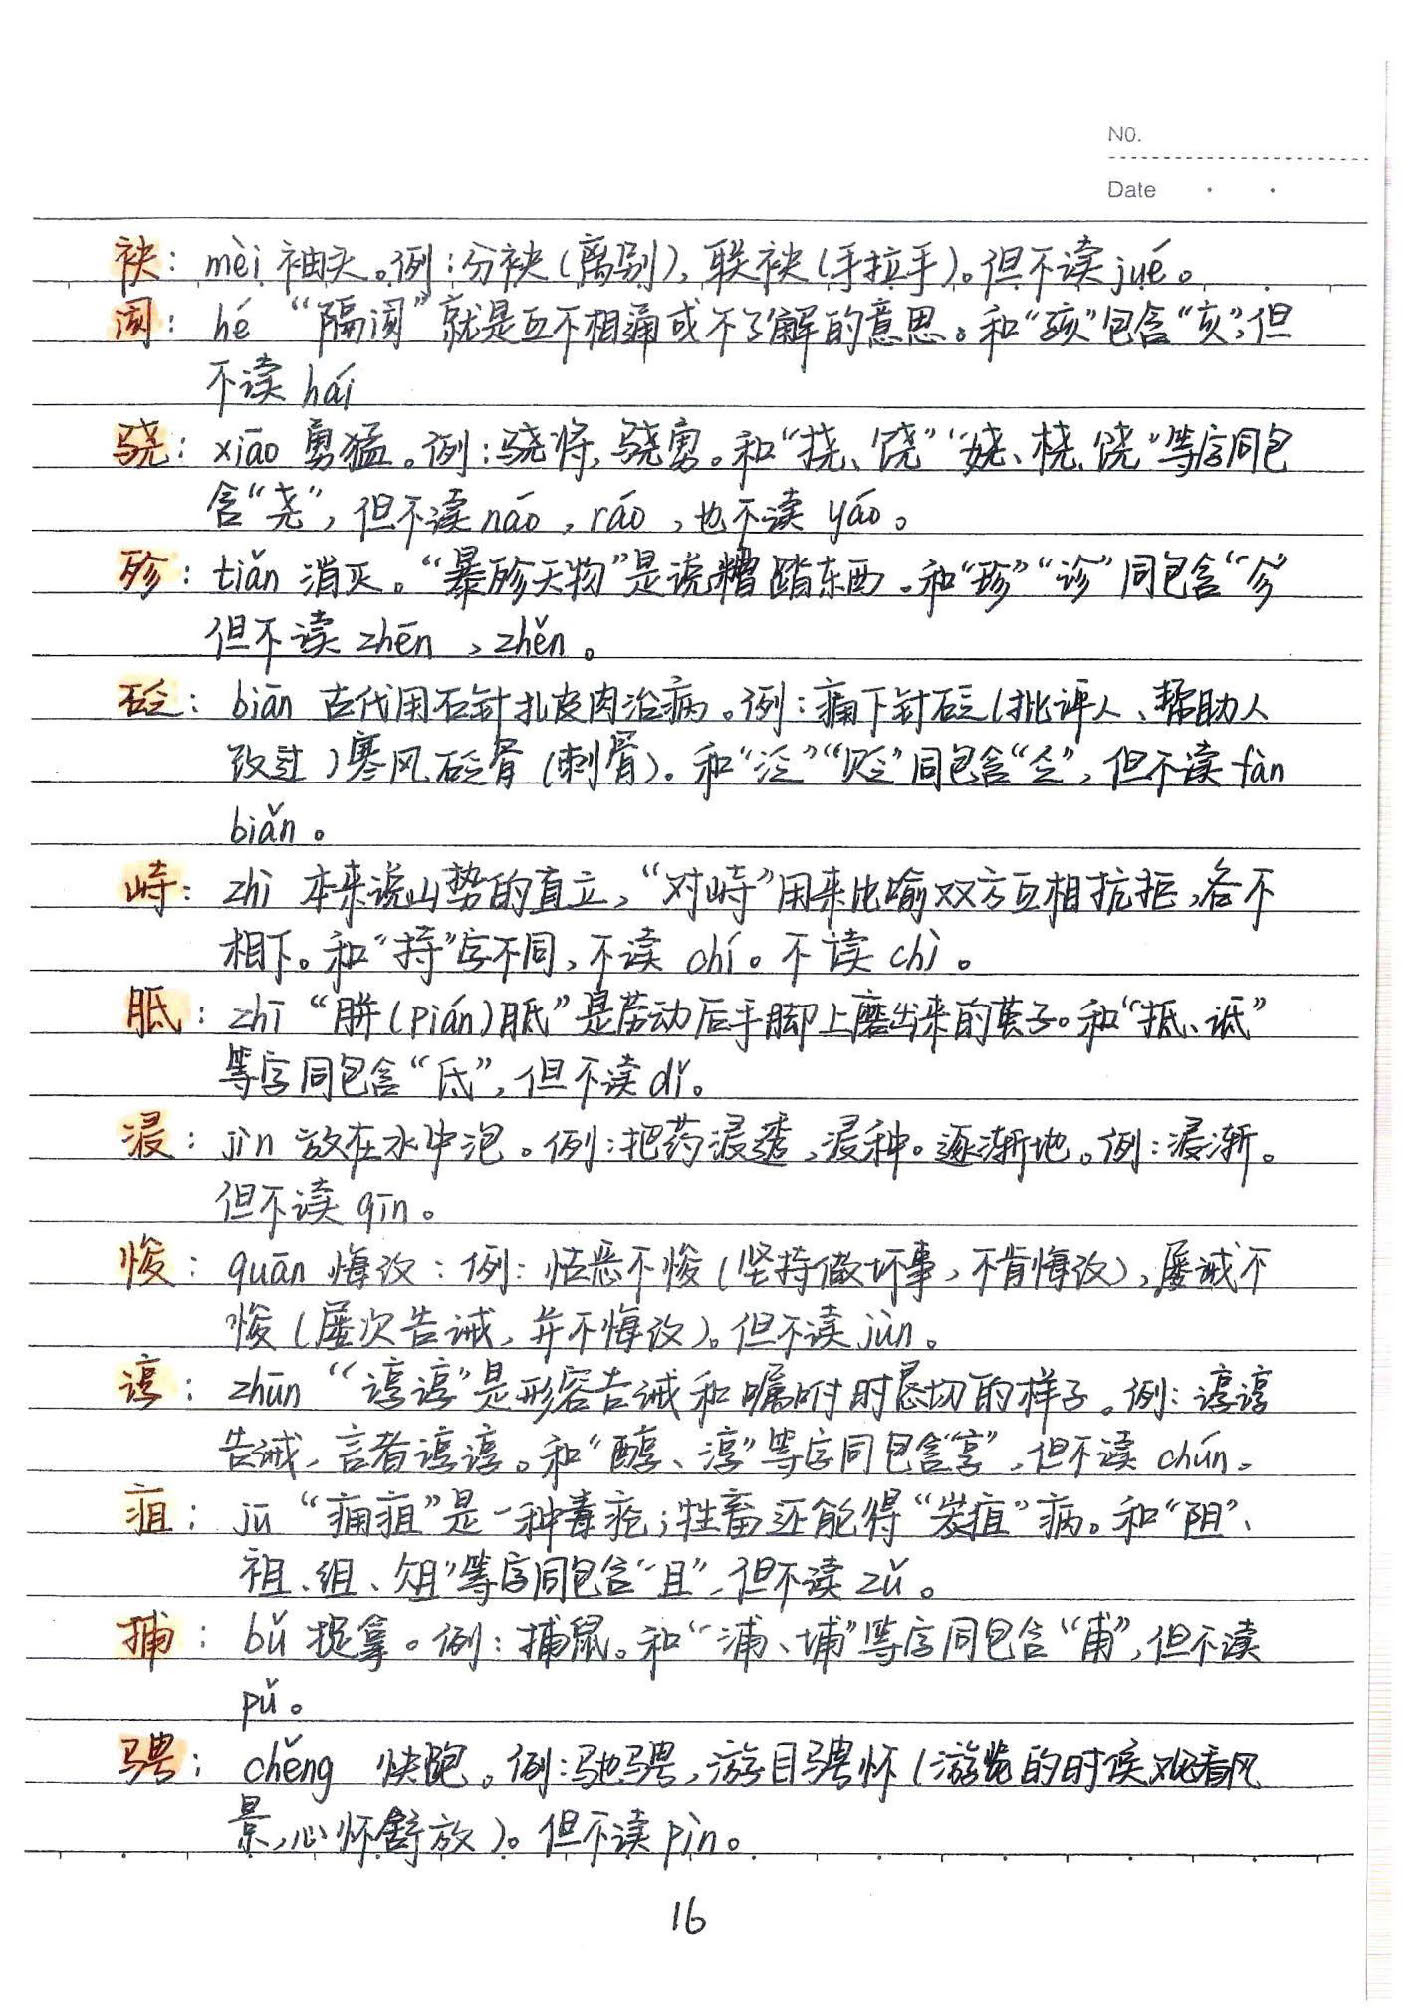 NO.
Date
袂：mèi 袖头。例：分袂（离别），联袂（手拉手）。但不读jué。
阂：hé “隔阂”就是互不相通或不了解的意思。和“孩”包含“亥”，但
不读 hái
骁：xiāo 勇猛。例：骁将，骁勇。和“挠、饶”“娆、桡、饶”等字同包
含“尧”，但不读náo，ráo，也不读 yáo。
殄：tiǎn 消灭。“暴殄天物”是说糟蹋东西。和“珍”“诊”同包含“㐱”
但不读 zhēn，zhěn。
砭：biān 古代用石针扎皮肉治病。例：痛下针砭（批评人、帮助人
改过）寒风砭骨（刺骨）。和“泛”“贬”同包含“乏”，但不读 fàn
biǎn。
峙：zhì 本来说山势的直立，“对峙”用来比喻双方互相抗拒，各不
相下。和“持”字不同，不读 chí。不读 chì。
胝：zhī “胼（pián）胝”是劳动后手脚上磨出来的茧子。和“抵、诋”
等字同包含“氐”，但不读dǐ。
浸：jìn 放在水中泡。例：把药浸透，浸种。逐渐地。例：浸渐。
但不读 qīn。
悛：quān 悔改：例：怙恶不悛（坚持做坏事，不肯悔改），屡诫不
悛（屡次告诫，并不悔改）。但不读jùn。
谆：zhūn “谆谆”是形容告诫和嘱咐时恳切的样子。例：谆谆
告诫，言者谆谆。和“醇、淳”等字同包含“享”，但不读 chún。
疽：jū “痈疽”是一种毒疮；牲畜还能得“炭疽”病。和“阻”、
祖、组、俎”等字同包含“且”，但不读 zǔ。
捕：bǔ 捉拿。例：捕鼠。和“浦、埔”等字同包含“甫”，但不读
pǔ。
骋：chěng 快跑。例：驰骋，游目骋怀（游览的时候观看风
景，心怀舒放）。但不读pìn。
16